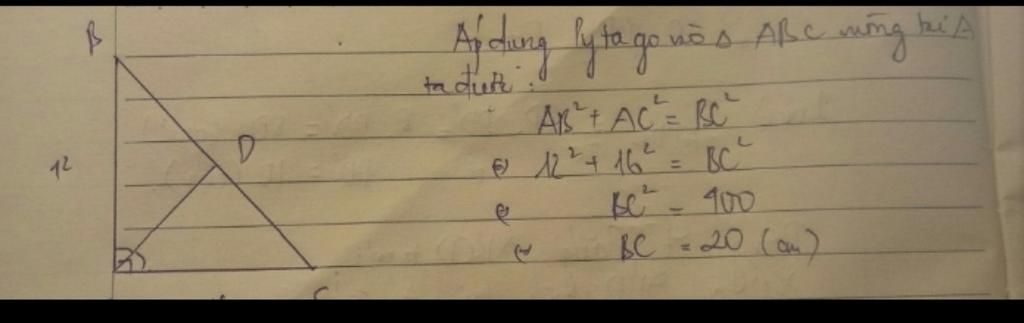 B
Áp dụng Pytago vào Δ ABC vuông tại A
ta được :
AB² + AC² = BC²
D
12
⇔ 12² + 16² = BC²
⇔ BC² = 400
⇔ BC = 20 (cm)
C